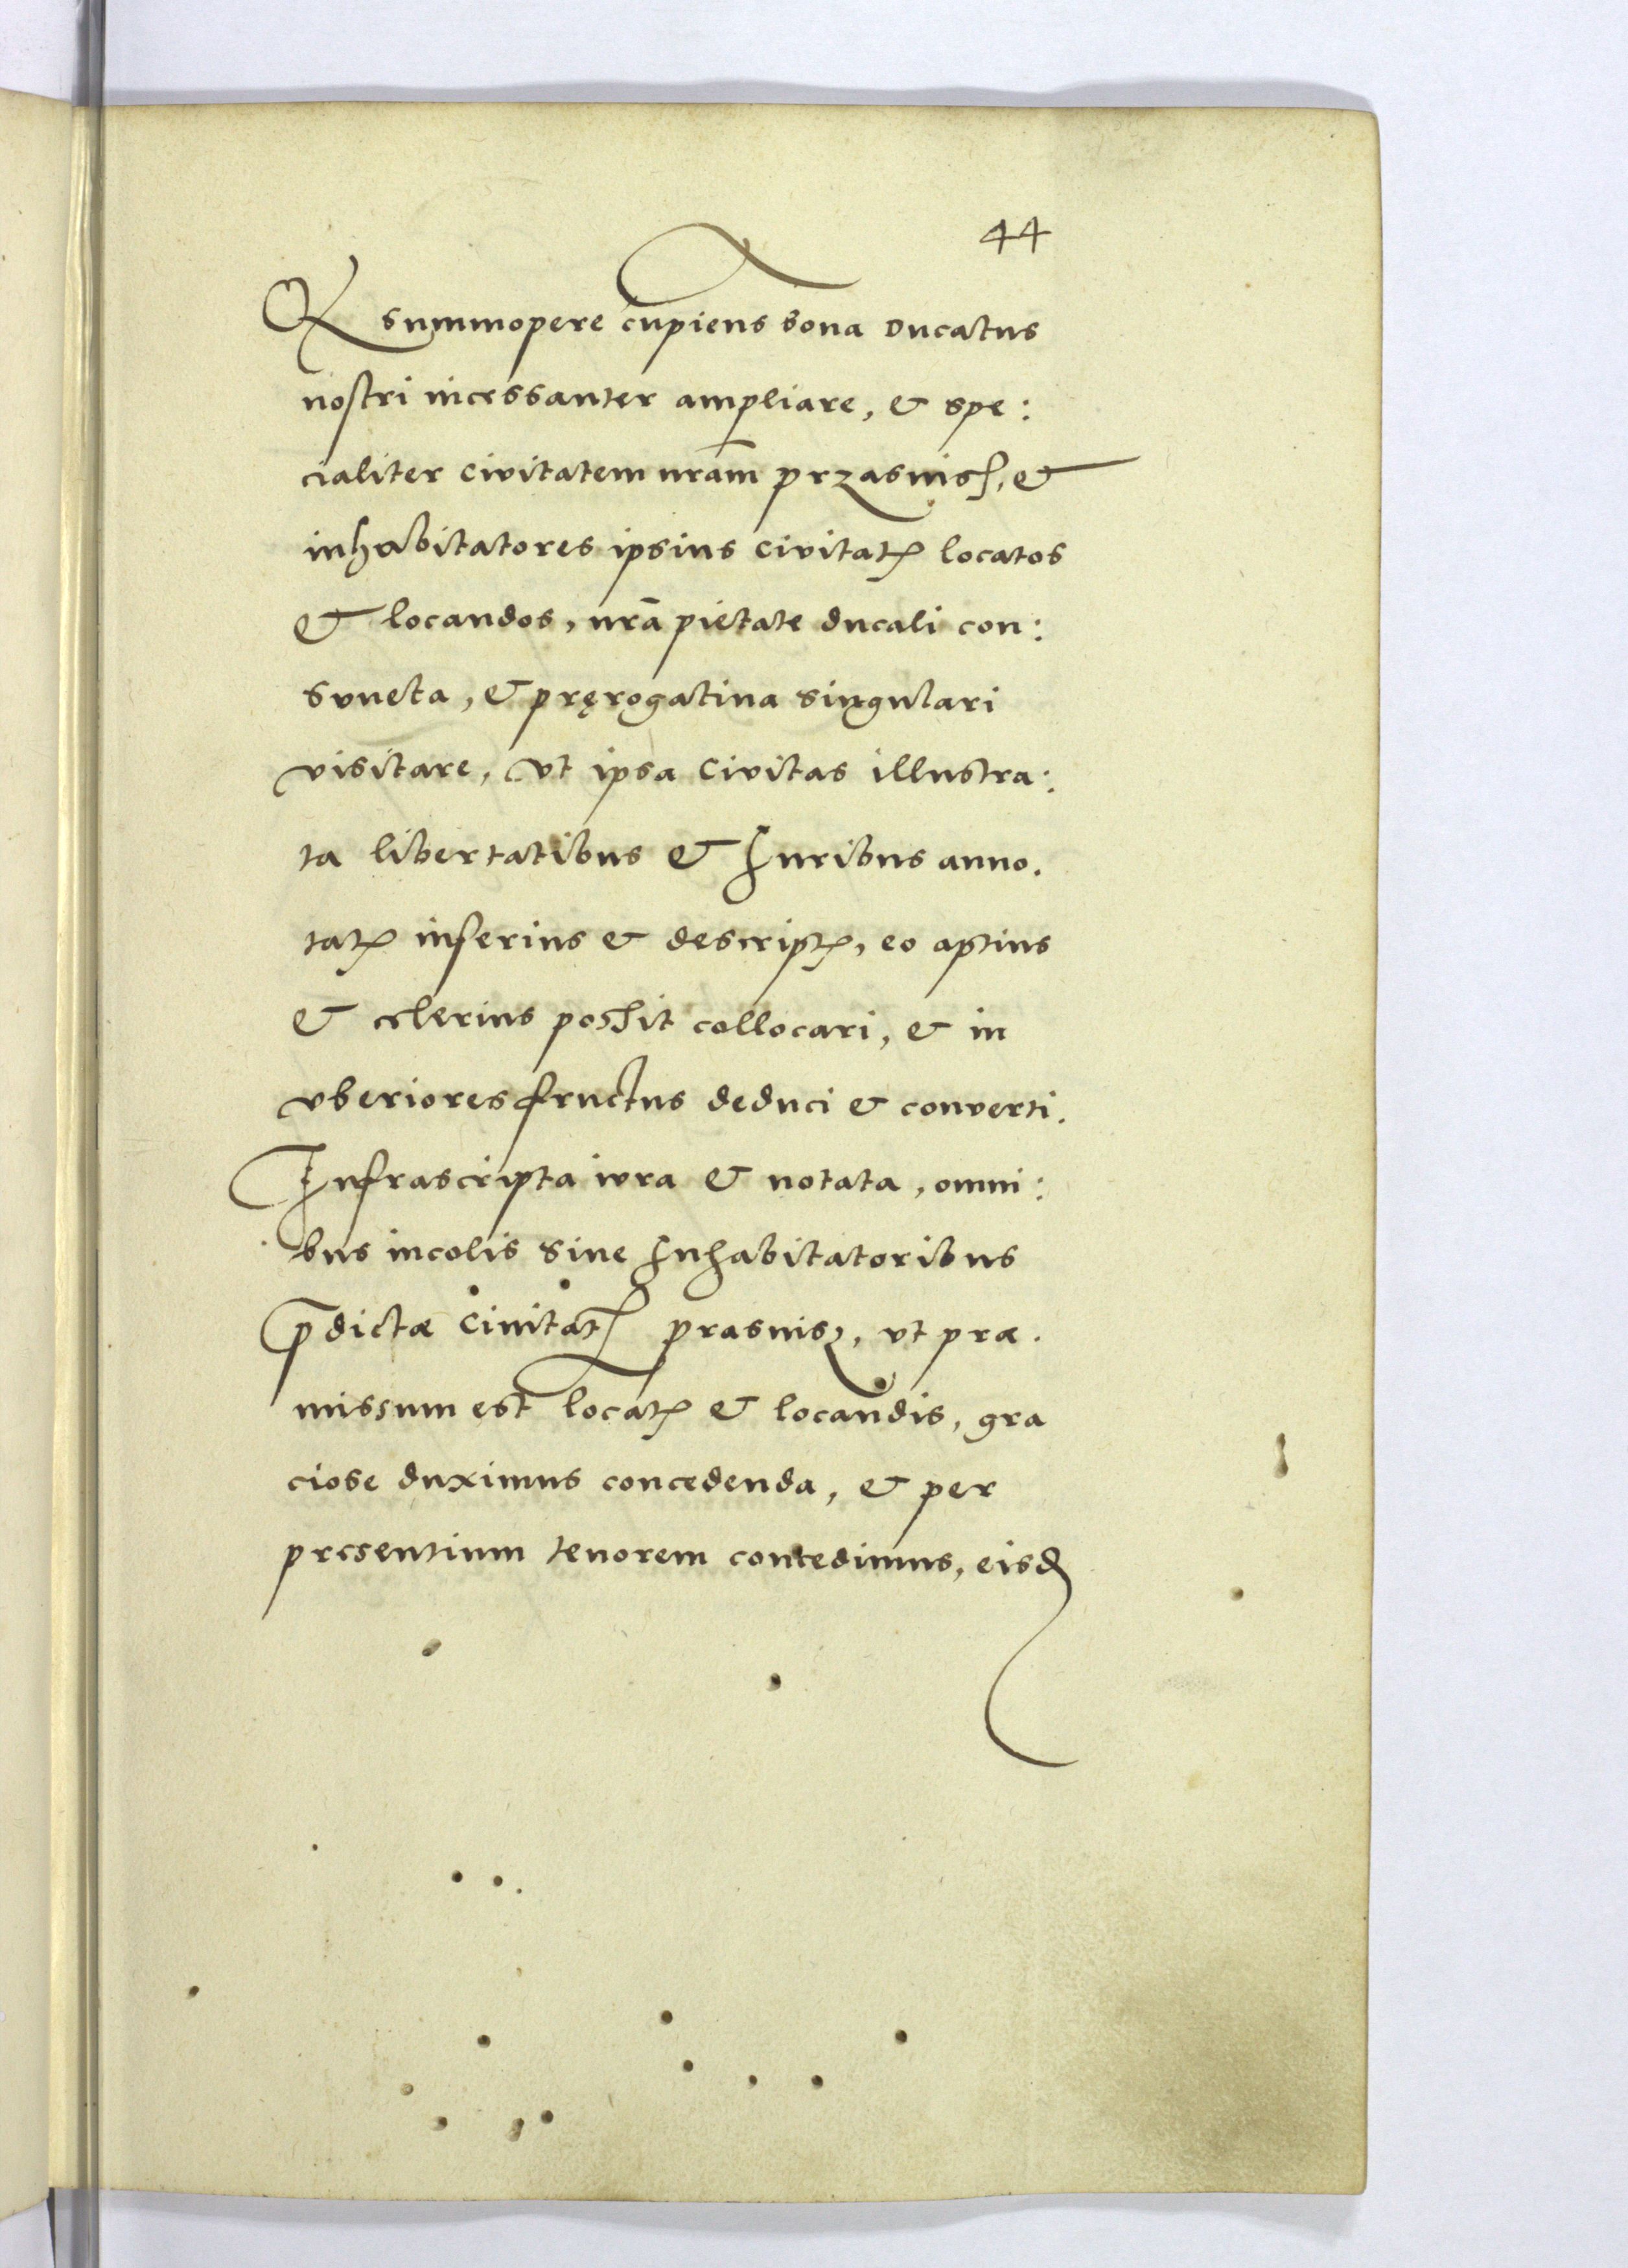 44
Et summopere cupiens bona Ducatus
nostri incessanter ampliare, & spe:
cialiter civitatem nram̄ przasnisz, &
inhabitatores ipsius civitatꝭ locatos
& locandos, nrā pietate ducali con:
sveta, & pręrogativa singulari
visitare, vt ipsa Civitas illustra:
ta libertatibus & Juribus anno.
tatꝭ inferius & descriptꝭ, eo aptius
& celerius possit collocari, & in
vberiores fructus deduci & converti.
Infrascripta iura & notata, omni:
bus incolis sive Inhabitatoribus
p̄dictæ Civitatꝭ prasnisz, vt præ.
missum est locatꝭ & locandis, gra
ciose duximus concedenda, & per
presentium tenorem concedimus, eisd